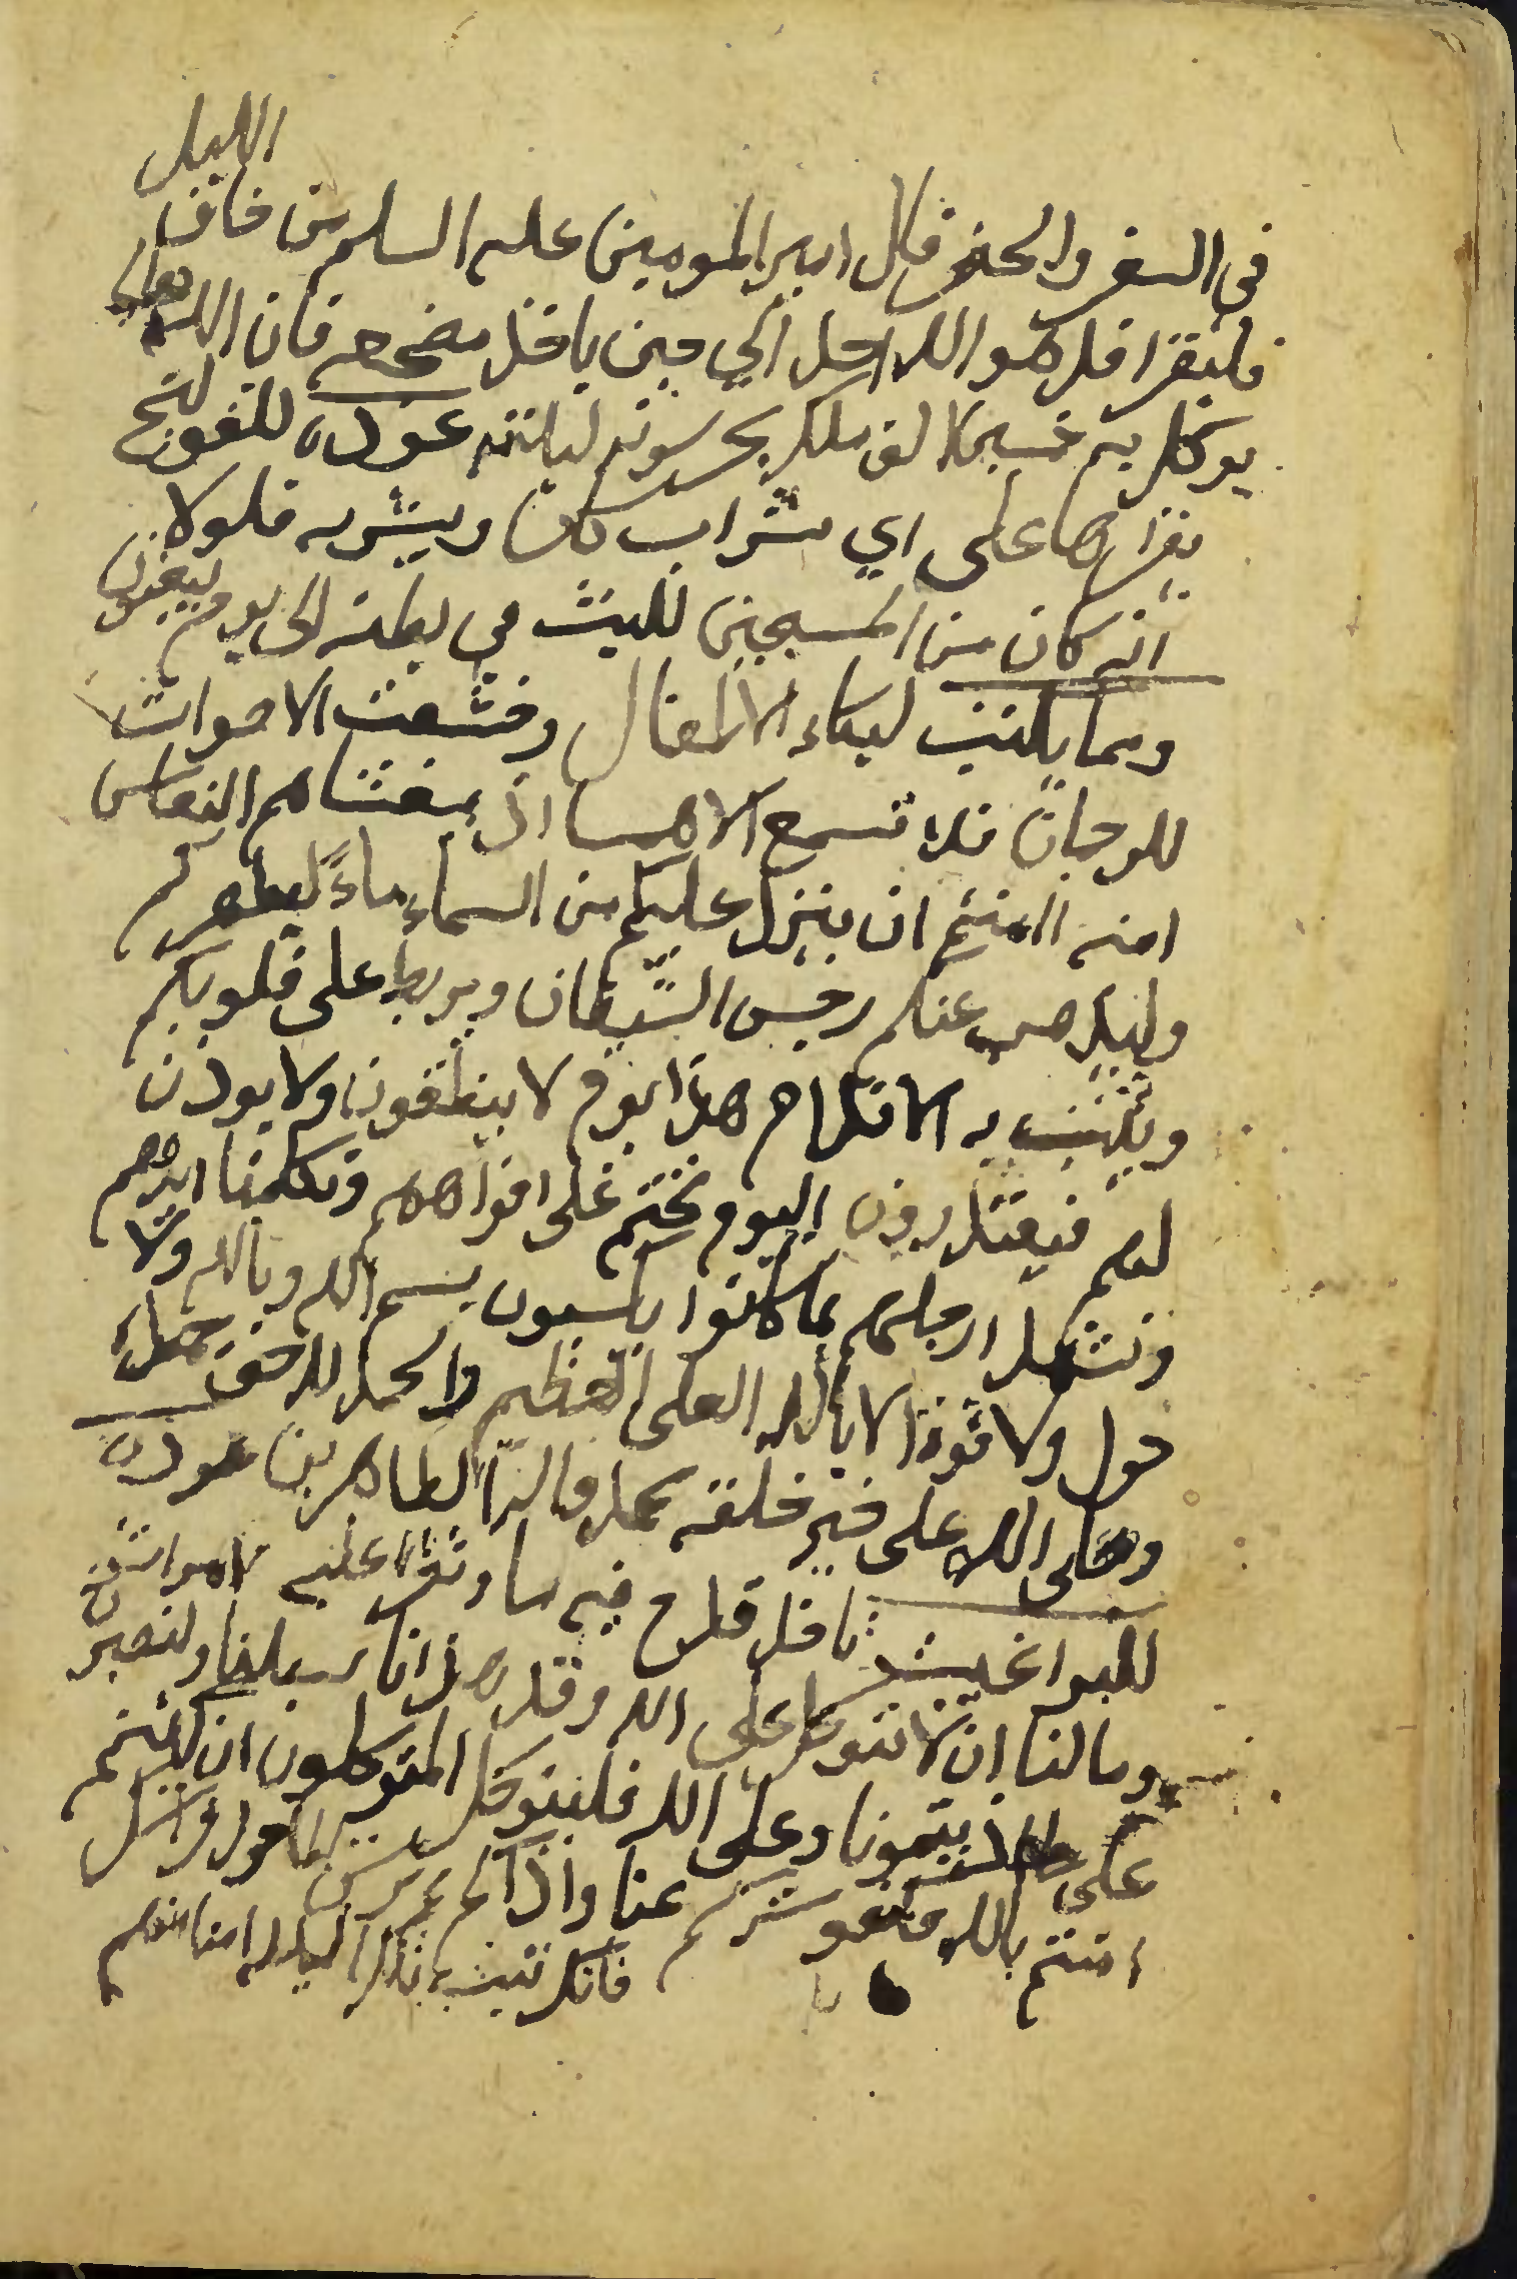 الليل
في السفر والحضر قال امير المومنين عليه السلم من خاف
فليقرا قل هو الله احد الي حين ياخذ مضجعه فان الله تعالى
يوكل به خمسين الف ملك يحرسونه ليلته عوذه للقولنج
يقراها على اي شراب كان ويشربه فلولا
انه كان من المسبحين للبث في بطنه الى يوم يبعثون
ومما يكتب لبكاء الاطفال وخشعت الاصوات
للرحمان فلا تسمع الا همسا اذ يغشاكم النعاس
امنه منه ان ينزل عليكم من السماء ماءً ليطهركم
وليذهب عنكم رجس الشيطان ويربط على قلوبكم
ويثبت به الاقدام هذا يوم لا ينطقون ولا يوذن
لهم فيعتذرون اليوم نختم على افواههم وتكلمنا ايديهم
وتشهد ارجلهم بما كانوا يكسبون بسم الله وبالله ولا
حول ولا قوة الا بالله العلى العظيم والحمد لله حق حمده
وصلى الله على خير خلقه محمد واله الطاهرين عوذه
للبراغيث تاخذ قدح فيه ماء وتقرا عليه مرات
ومالنا ان لا نتوكل على الله وقد هدانا سبلنا ولنصبرن
على ما اذيتمونا وعلى الله فليتوكل المتوكلون ان كنتم
امنتم بالله فكفو شركم عنا واذا لم ترش الماء حول فراشك
فانك تبيت تلك الليله امنا منهم